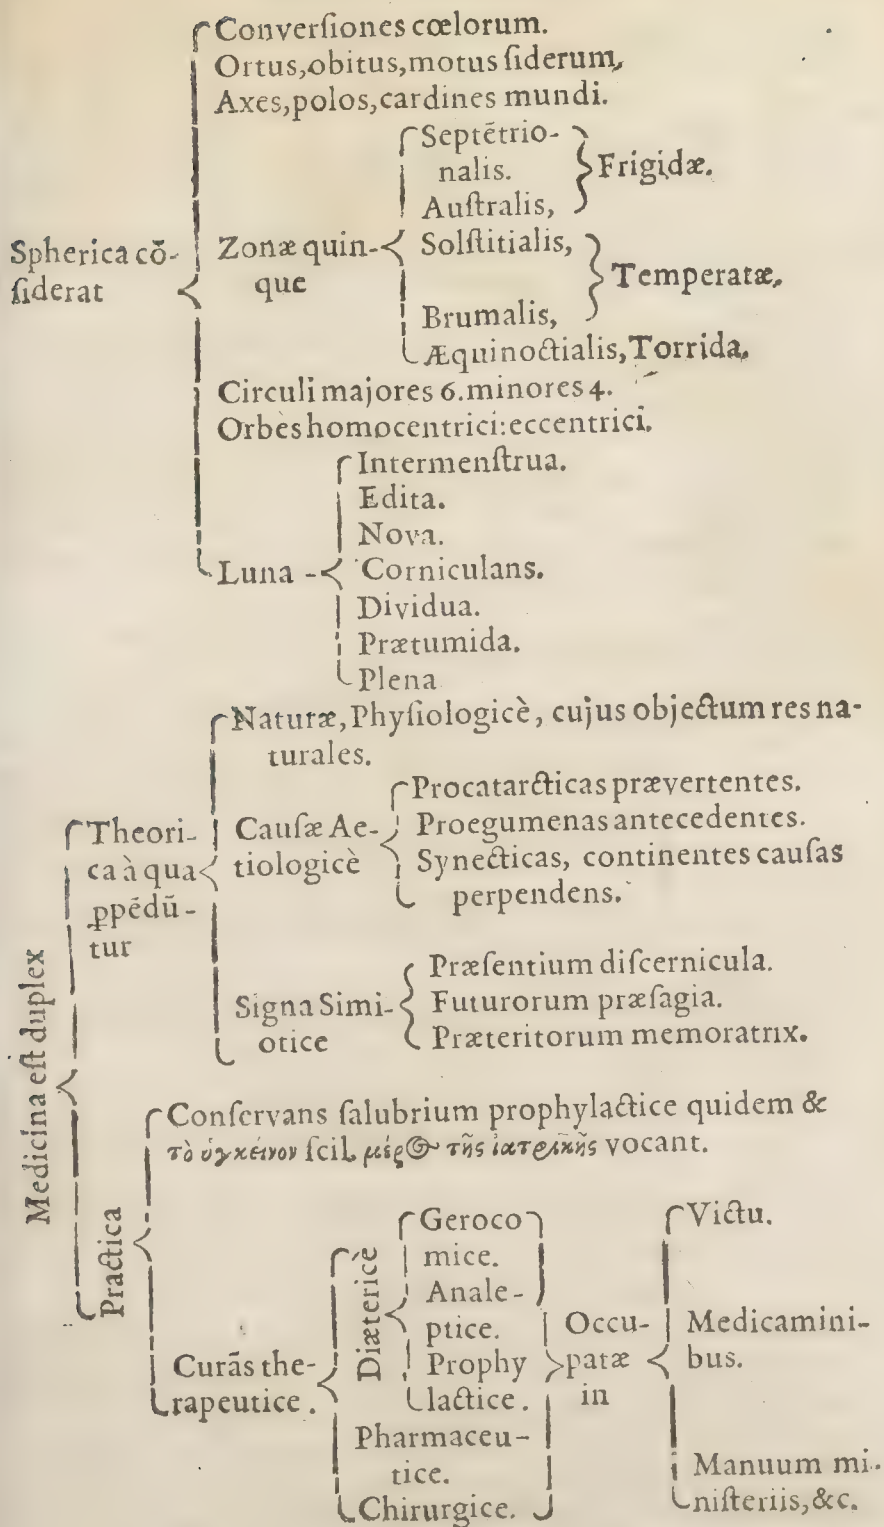 Converſiones cœlorum.
Ortus,obitus,motus ſiderum,
Axes,polos,cardines mundi.
Spherica cō-
ſiderat
Zonæ quin-
que
Septētrio-
nalis.
Auſtralis,
Frigidæ.
Solſtitialis,
Brumalis,
Temperatæ,
Æquinoctialis,Torrida,
Circuli majores 6.minores 4.
Orbes homocentrici:eccentrici.
Luna
Intermenſtrua.
Edita.
Nova.
Corniculans.
Dividua.
Prætumida.
Plena
Medicina eſt duplex
Theori-
ca à qua
ꝑpēdū-
tur
Naturæ, Phyſiologicè, cujus objectum res na-
turales.
Cauſæ Ae-
tiologicè
Procatarcticas prævertentes.
Proegumenas antecedentes.
Synecticas, continentes cauſas
perpendens.
Signa Simi-
otice
Præſentium diſcernicula.
Futurorum præſagia.
Præteritorum memoratrix.
Practica
Conſervans ſalubrium prophylactice quidem &
τὸ ὑγκεινον ſcil. μέρος τῆς ἰατρικῆς vocant.
Curās the-
rapeutice.
Diæterice
Geroco
mice.
Anale-
ptice.
Prophy
lactice.
Pharmaceu-
tice.
Chirurgice.
Occu-
patæ
in
Victu.
Medicamini-
bus.
Manuum mi-
niſteriis,&c.